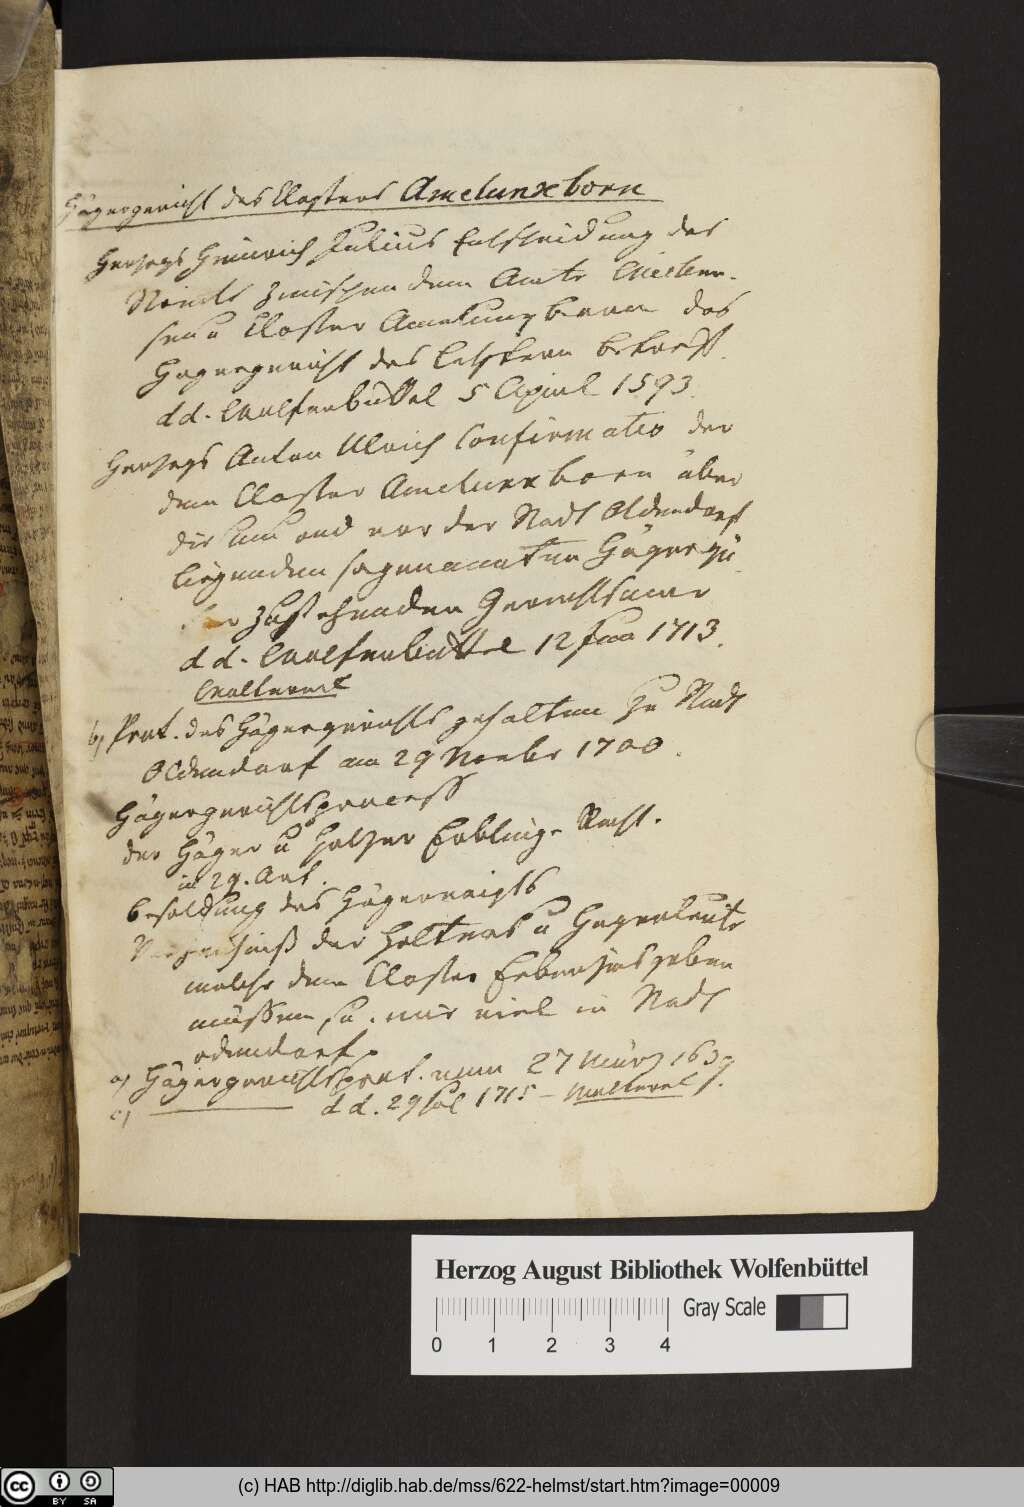 Hägergericht des Closters Amelunxborn
Herzogs Heinrich Julius Entscheidung des
Streits zwischen dem Amte Wicken-
sen u Closter Amelungborn das
Hägergericht des letztern betreff.
dd. Wolfenbüttel 5 April 1593.
Herzogs Anton Ulrich Confirmatio der
dem Closter Amelunxborn über
die und vor der Stadt Oldendorf
liegenden sogenannten Hägergü
zustehenden Gerechtsame
dd. Wolfenbüttel 12 Jun 1713.
b) Prot. des Hägergerichts gehalten zu Stadt
Oldendorf am 29 Novbr 1700.
Hägergerichtsprocess
der Häger u Holzer Erbling. Recht.
in 29. Art.
Besoldung des Hägervoigts
Verzeichniß der u Hägerleute
welche dem Closter Erbenzins geben
müssen, so. wie viel in Stadt
odendorf.
a) Hägergerichtsprot. vom 27 März 1639
c) ——— dd. 29 Jul 1715 –
Herzog August Bibliothek Wolfenbüttel
0 1 2 3 4 Gray Scale
CC BY SA (c) HAB http://diglib.hab.de/mss/622-helmst/start.htm?image=00009